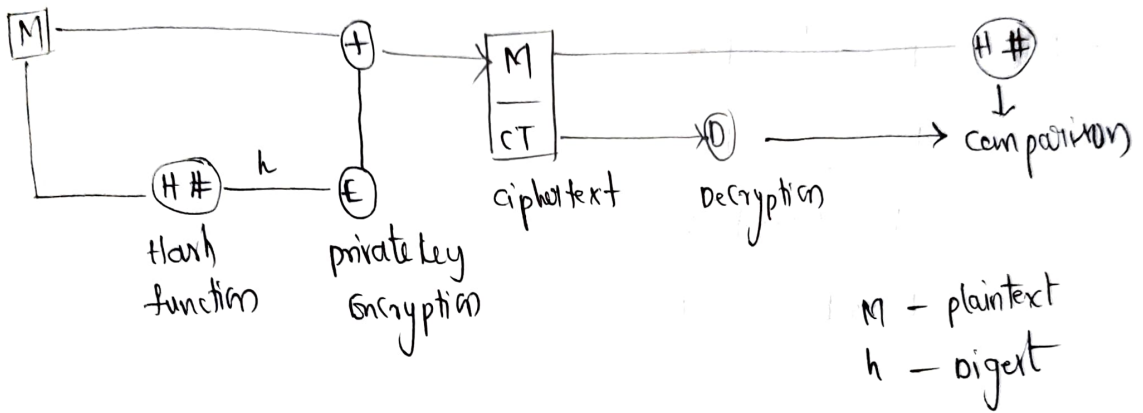 M
+
M
CT
H #
H #
h
E
D
comparison
ciphertext
Decryption
Hash
function
private key
Encryption
M - plaintext
h - Digest